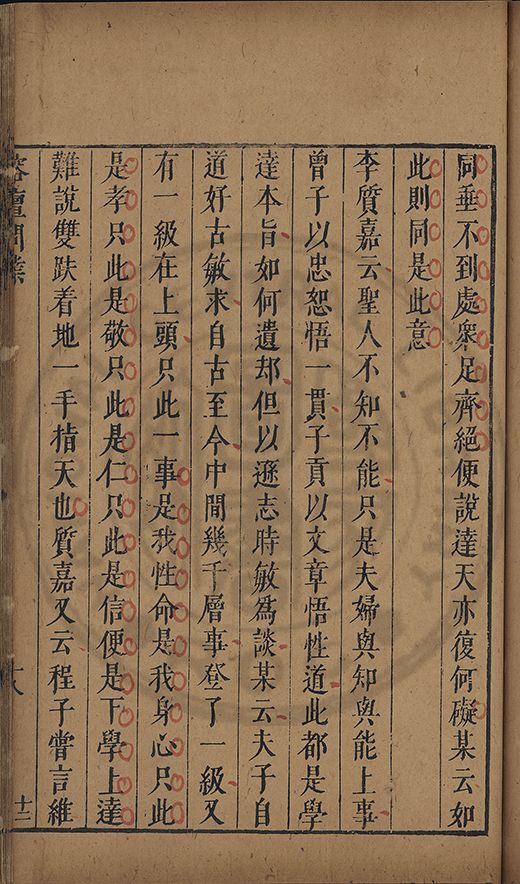 同垂不到處衆足齊絕便說達天亦復何礙某云如
此則同是此意
李質嘉云聖人不知不能只是夫婦與知與能上事
曾子以忠恕悟一貫子貢以文章悟性道此都是學
達本旨如何遺却但以遜志時敏爲談某云夫子自
道好古敏求自古至今中間幾千層事登了一級又
有一級在上頭只此一事是我性命是我身心只此
是孝只此是敬只此是仁只此是信便是下學上達
難說雙趺着地一手指天也質嘉又云程子嘗言維
榕壇問業
十八
十二